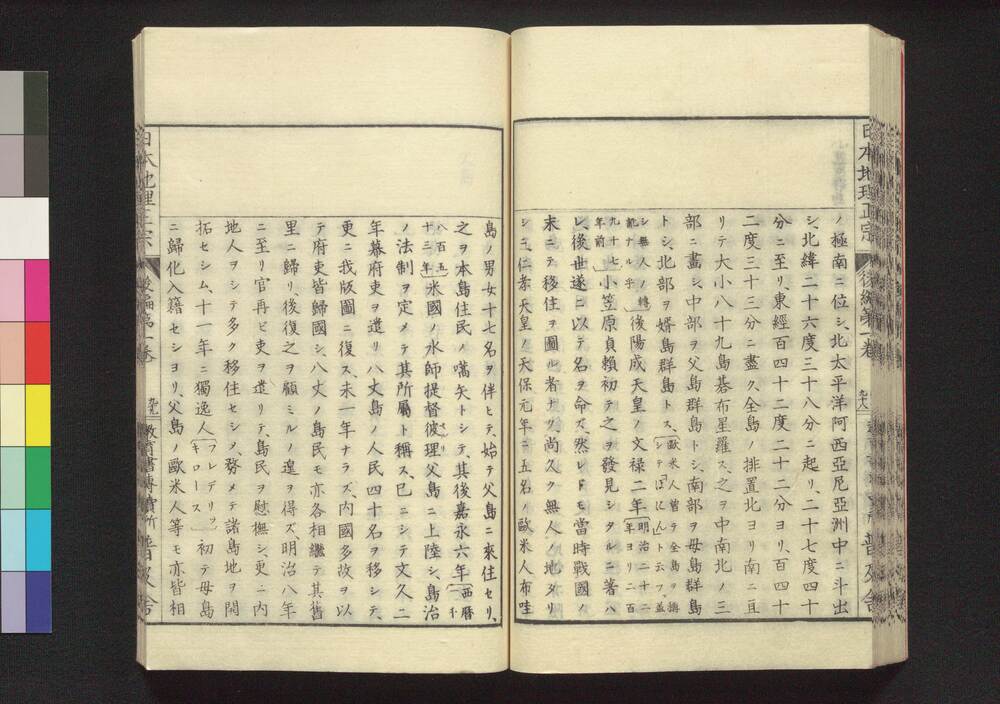 日本地理正宗
後編第一卷
九十八
普及舍
ノ極南ニ位シ、北太平洋阿西亞尼亞洲中ニ斗出
シ、北緯二十六度三十八分ニ起リ、二十七度四十
分ニ至リ、東經百四十二度二十二分ヨリ、百四十
二度三十三分ニ盡ク、全島ノ排置北ヨリ南ニ亘
リテ大小八十九島碁布星羅ス、之ヲ中南北ノ三
部ニ畫シ、中部ヲ父島群島トシ、南部ヲ母島群島
トシ、北部ヲ婿島群島トス、歐米人曾テ全島ヲ擧シテ「ぼにん」ト云フ、蓋
シ無人ノ轉訛ナル乎後陽成天皇ノ文禄二年明治二十二年ヨリ二百
九十七年前小笠原貞頼初テ之ヲ發見シタルニ著ハ
レ、後世遂ニ以テ名ヲ命ズ、然レドモ當時戰國ノ
末ニテ移住ヲ圖ル者ナク、尚久ク無人ノ地タリ
シニ、仁孝天皇ノ天保元年ニ五名ノ歐米人布哇
島ノ男女十七名ヲ伴ヒテ、始テ父島ニ來住セリ、
之ヲ本島住民ノ嚆矢トシテ、其後嘉永六年西暦一千
八百五十三年米國ノ水師提督彼理父島ニ上陸シ、島治
ノ法制ヲ定メテ其所屬ト稱ス、已ニシテ文久二
年幕府吏ヲ遣リ八丈島ノ人民四十名ヲ移シテ、
更ニ我版圖ニ復ス、未一年ナラズ、内國多故ヲ以
テ府吏皆歸國シ、八丈ノ島民モ亦各相繼テ其舊
里ニ歸リ、後復之ヲ顧ミルノ遑ヲ得ズ、明治八年
ニ至リ官再ビ吏ヲ遣リテ、島民ヲ慰撫シ、更ニ内
地人ヲシテ多ク移住セシメ、務メテ諸島地ヲ開
拓セシム、十一年ニ獨逸人「フレデリッキロース」初テ母島
ニ歸化入籍セシヨリ、父島ノ歐米人等モ亦皆相
日本地理正宗
後編第一卷
九十九
教育書專賣所
普及舍